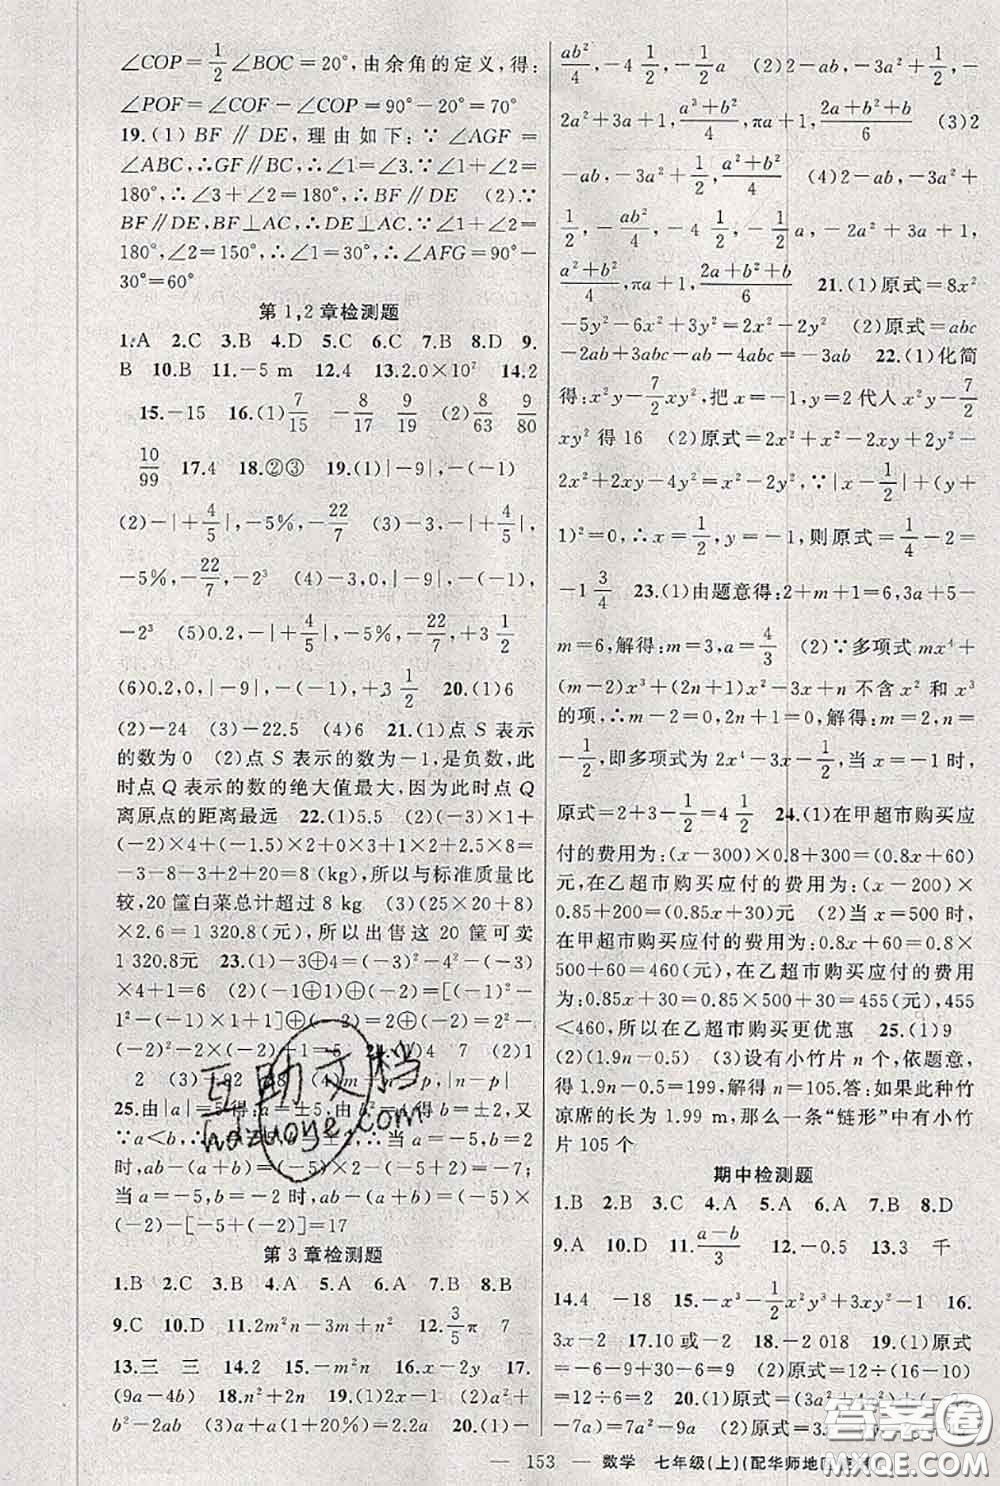 ∠COP=1/2∠BOC=20°,由余角的定义,得:
∠POF=∠COF-∠COP=90°-20°=70°
19.(1)BF∥DE,理由如下:∵∠AGF=
∠ABC,∴GF∥BC,∴∠1=∠3.∵∠1+∠2=
180°,∴∠3+∠2=180°,∴BF∥DE (2)∵
BF∥DE,BF⊥AC,∴DE⊥AC.∵∠1+∠2=
180°,∠2=150°,∴∠1=30°,∴∠AFG=90°-
30°=60°
第1,2章检测题
1.A 2.C 3.B 4.D 5.C 6.C 7.B 8.D 9.
B 10.B 11.-5 m 12.4 13.2.0×10² 14.2
15.-15 16.(1)7/15 -8/17 9/19 (2)8/63 9/80
10/99 17.4 18.②③ 19.(1)|-9|,-(-1)
(2)-|+4/5|,-5%,-22/7 (3)-3,-|+4/5|,
-5%,-22/7,-2³ (4)-3,0,|-9|,-(-1),
-2³ (5)0.2,-|+4/5|,-5%,-22/7,+3 1/2
(6)0.2,0,|-9|,-(-1),+3 1/2 20.(1)6
(2)-24 (3)-22.5 (4)6 21.(1)点S表示
的数为0 (2)点S表示的数为-1,是负数,此
时点Q表示的数的绝大值最大,因此此时点Q
离原点的距离最远 22.(1)5.5 (2)(-3)×1+
(-2)×4+(-1.5)×2+0×3+1×2+2.5×8=
-3-8-3+2+20=8(kg),所以与标准质量比
较,20筐白菜总计超过8 kg (3)(25×20+8)
×2.6=1 320.8(元),所以出售这20筐可卖
1 320.8元 23.(1)-3⊕4=(-3)²-4²-(-3)
×4+1=6 (2)(-1⊕1)⊕(-2)=[(-1)²-
1²-(-1)×1+1]⊕(-2)=2⊕(-2)=2²-
(-2)²-2×(-2)+1=5 4 7 (2)1
2 (3)-92 88 (4)m n-p,|n-p|
25.由|a|=5得:a=±5,由b²=4得b=±2,又
∵a<b,∴a=-5,b=±2.∴当a=-5,b=2
时,ab-(a+b)=-5×2-(-5+2)=-7;
当a=-5,b=-2时,ab-(a+b)=(-5)×
(-2)-[-5+(-2)]=17
第3章检测题
1.B 2.C 3.B 4.A 5.A 6.A 7.B 8.B
9.C 10.D 11.2m²n-3m+n² 12.3/5π 7
13.三 三 14.2 15.-m²n 16.x-2y 17.
(9a-4b) 18.n²+2n 19.(1)2x-1 (2)a²+
b²-2ab (3)a+a(1+20%)=2.2a 20.(1)-
ab²/4,-4 1/2,-1/2a (2)2-ab,-3a²+1/2,-
2a²+3a+1,(a³+b²)/4,πa+1/2,(2a+b²+b)/6 (3)2
-ab,-3a²+1/2,(a²+b²)/4 (4)2-ab,-3a²+
1/2,ab²/4,-4 1/2,-1/2a,-2a²+3a+1,
(a²+b²)/4,πa+1/2,(2a+b²+b)/6 21.(1)原式=8x²
-5y²-6x²+6y²=2x²+y² (2)原式=abc
-2ab+3abc-ab-4abc=-3ab 22.(1)化简
得:x²y-7/2xy²,把x=-1,y=2代入x²y-7/2
xy²得16 (2)原式=2x²+x²-2xy+2y²-
2x²+2xy-4y²=x²-2y²,∵|x-1/2|+(y+
1)²=0,∴x=1/2,y=-1,则原式=1/4-2=
-1 3/4 23.(1)由题意得:2+m+1=6,3a+5-
m=6,解得:m=3,a=4/3 (2)∵多项式mx⁴+
(m-2)x³+(2n+1)x²-3x+n不含x²和x³
的项,∴m-2=0,2n+1=0,解得:m=2,n=
-1/2,即多项式为2x⁴-3x-1/2,当x=-1时,
原式=2+3-1/2=4 1/2 24.(1)在甲超市购买应
付的费用为:(x-300)×0.8+300=(0.8x+60)
元,在乙超市购买应付的费用为:(x-200)×
0.85+200=(0.85x+30)元 (2)当x=500时,
在甲超市购买应付的费用为:0.8x+60=0.8×
500+60=460(元),在乙超市购买应付的费用
为:0.85x+30=0.85×500+30=455(元),455
<460,所以在乙超市购买更优惠 25.(1)9
(2)(1.9n-0.5) (3)设有小竹片n个,依题意,
得1.9n-0.5=199,解得:n=105.答:如果此种竹
凉席的长为1.99 m,那么一条“链形”中有小竹
片105个
期中检测题
1.B 2.B 3.C 4.A 5.A 6.A 7.B 8.D
9.A 10.D 11.(a-b)/3 12.-0.5 13.3 千
14.4 -18 15.-x³-1/2x²y³+3xy²-1 16.
3x-2 17.10或-2 18.-2 018 19.(1)原式
=-6-9+6=-9 (2)原式=12÷(16-10)
=12÷6=2 20.(1)原式=(3a²+4a²)+(-2a
-7a)=7a²-9a (2)原式=
— 153 — 数学 七年级(上)(配华师地
互助文档
hazuoye.com
答案卷
MXQE.COM